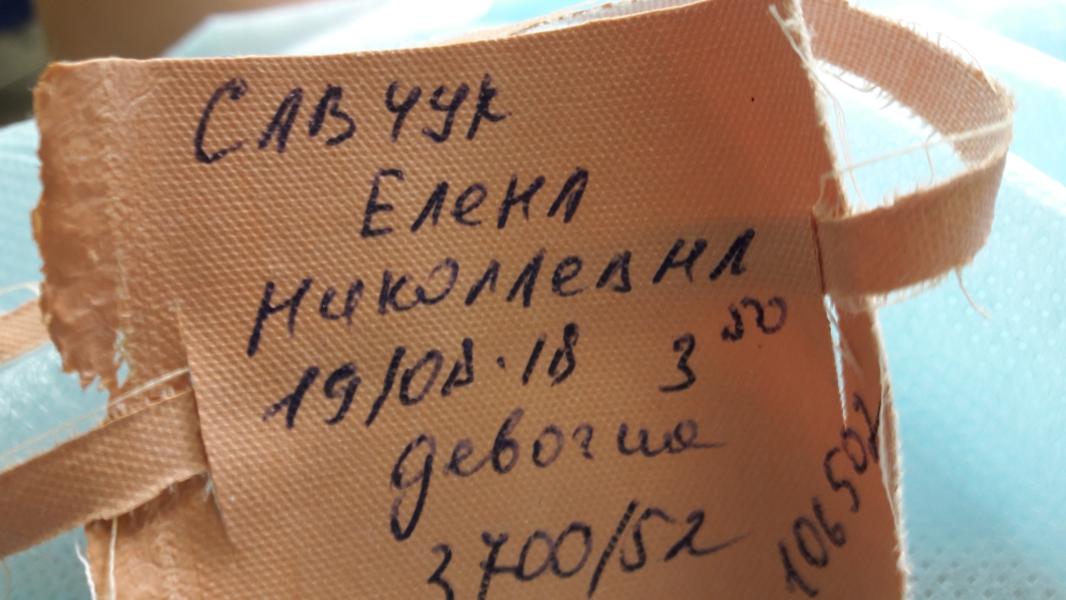 Савчук
Елена
Николаевна
19/08.18 3 50
девочка
3700/52
106502